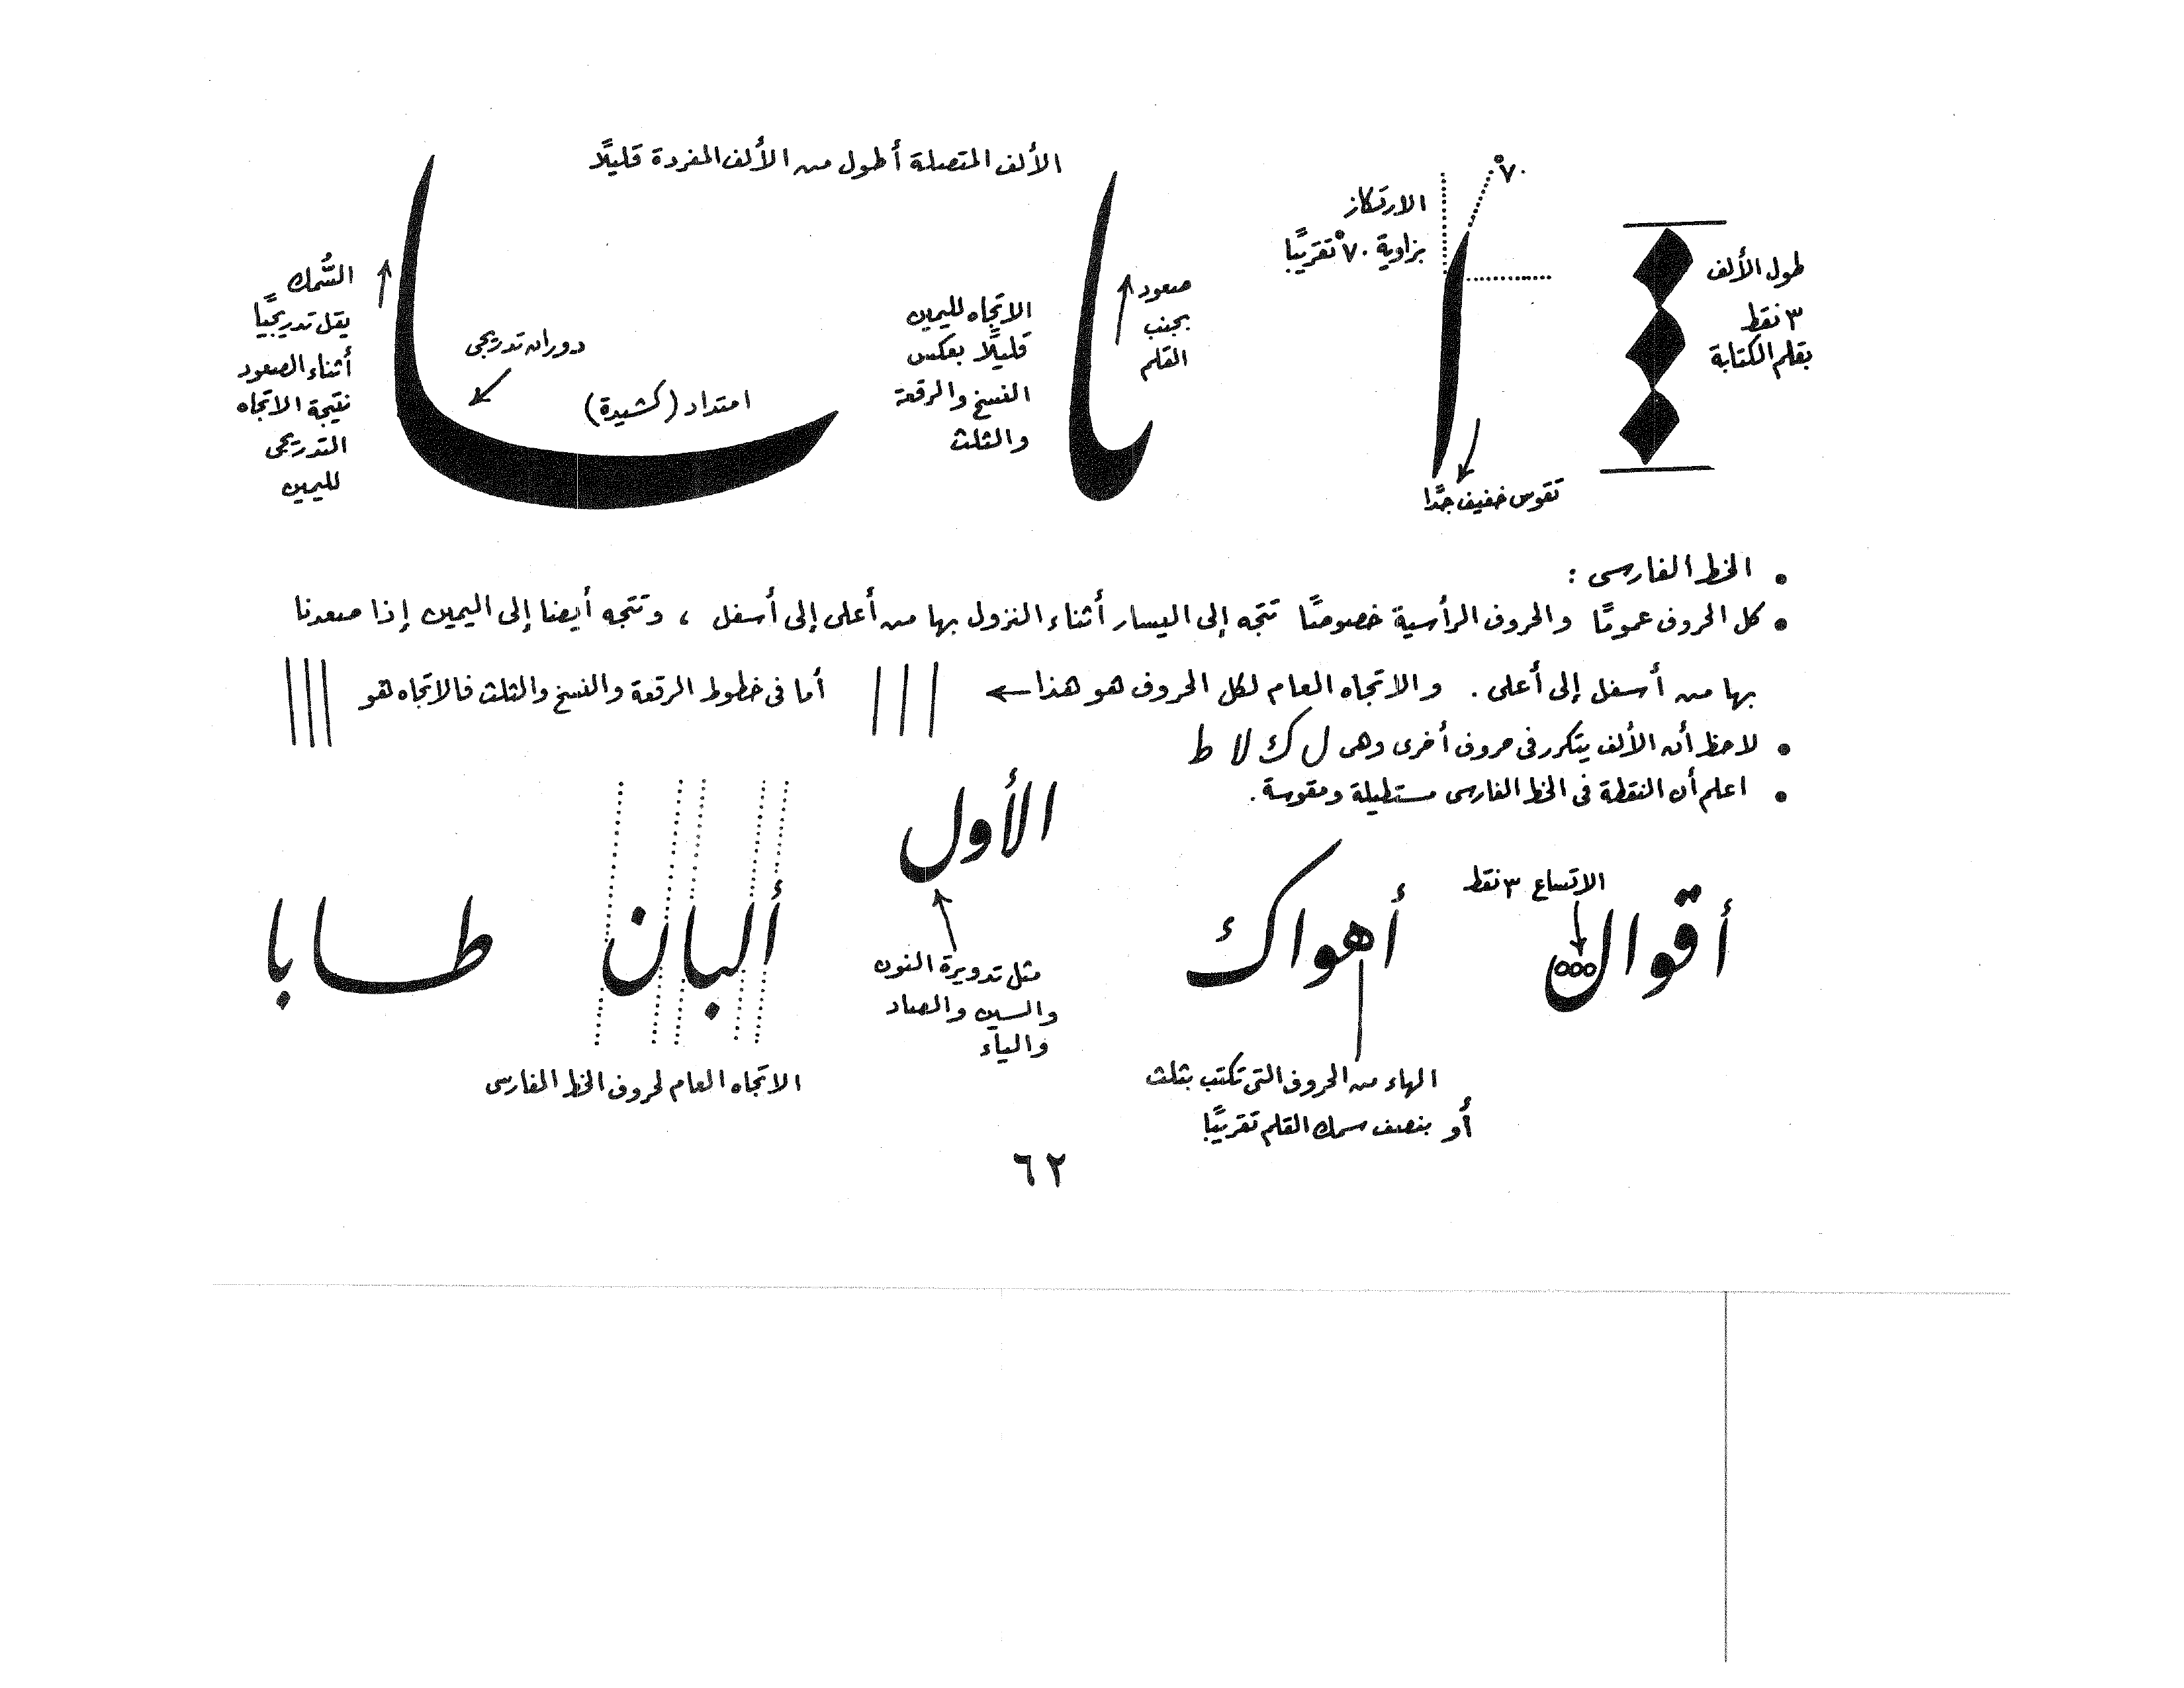 الألف المتصلة أطول من الألف المفردة قليلًا
٧٠°
الارتكاز
بزاوية ٧٠° تقريبًا
طول الألف
٣ نقط
بقلم الكتابة
تقوس خفيف جدًا
صعود
بجنب
القلم
الاتجاه لليمين
قليلًا بعكس
النسخ والرقعة
والثلث
امتداد (كشيدة)
دوران تدريجى
السُّمك
يقل تدريجيًا
أثناء الصعود
نتيجة الاتجاه
التدريجى
لليمين
• الخط الفارسى :
• كل الحروف عمومًا والحروف الرأسية خصوصًا تتجه إلى اليسار أثناء النزول بها من أعلى إلى أسفل ، وتتجه أيضا إلى اليمين إذا صعدنا
بها من أسفل إلى أعلى . والاتجاه العام لكل الحروف هو هذا ← أما فى خطوط الرقعة والنسخ والثلث فالاتجاه هو
• لاحظ أن الألف يتكرر فى حروف أخرى وهى ل ك لا ط
• اعلم أن النقطة فى الخط الفارسى مستطيلة ومقوسة .
الاتساع ٣ نقط
أقوال
أهواك
الهاء من الحروف التى تكتب بثلث
أو بنصف سمك القلم تقريبًا
الأول
مثل تدويرة النون
والسين والصاد
والياء
ألبان
الاتجاه العام لحروف الخط الفارسى
طابا
٦٢